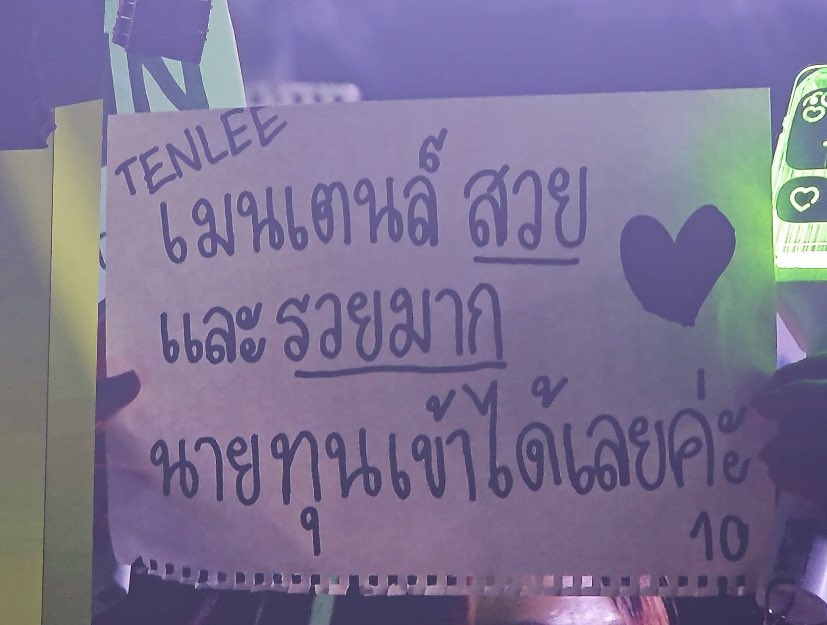 N
TENLEE
เมนเตนล์ สวย
และ รวยมาก
นายทุนเข้าได้เลยค่ะ
10